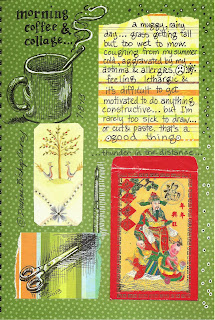 morning
coffee &
collage...
a muggy, rainy
day... grass getting tall
but too wet to mow.
coughing from my summer
cold, aggravated by my
asthma & allergies.
feeling lethargic &
it's difficult to get
motivated to do anything
constructive... but I'm
rarely too sick to draw...
or cut & paste. that's a
good thing.
thunder in the distance